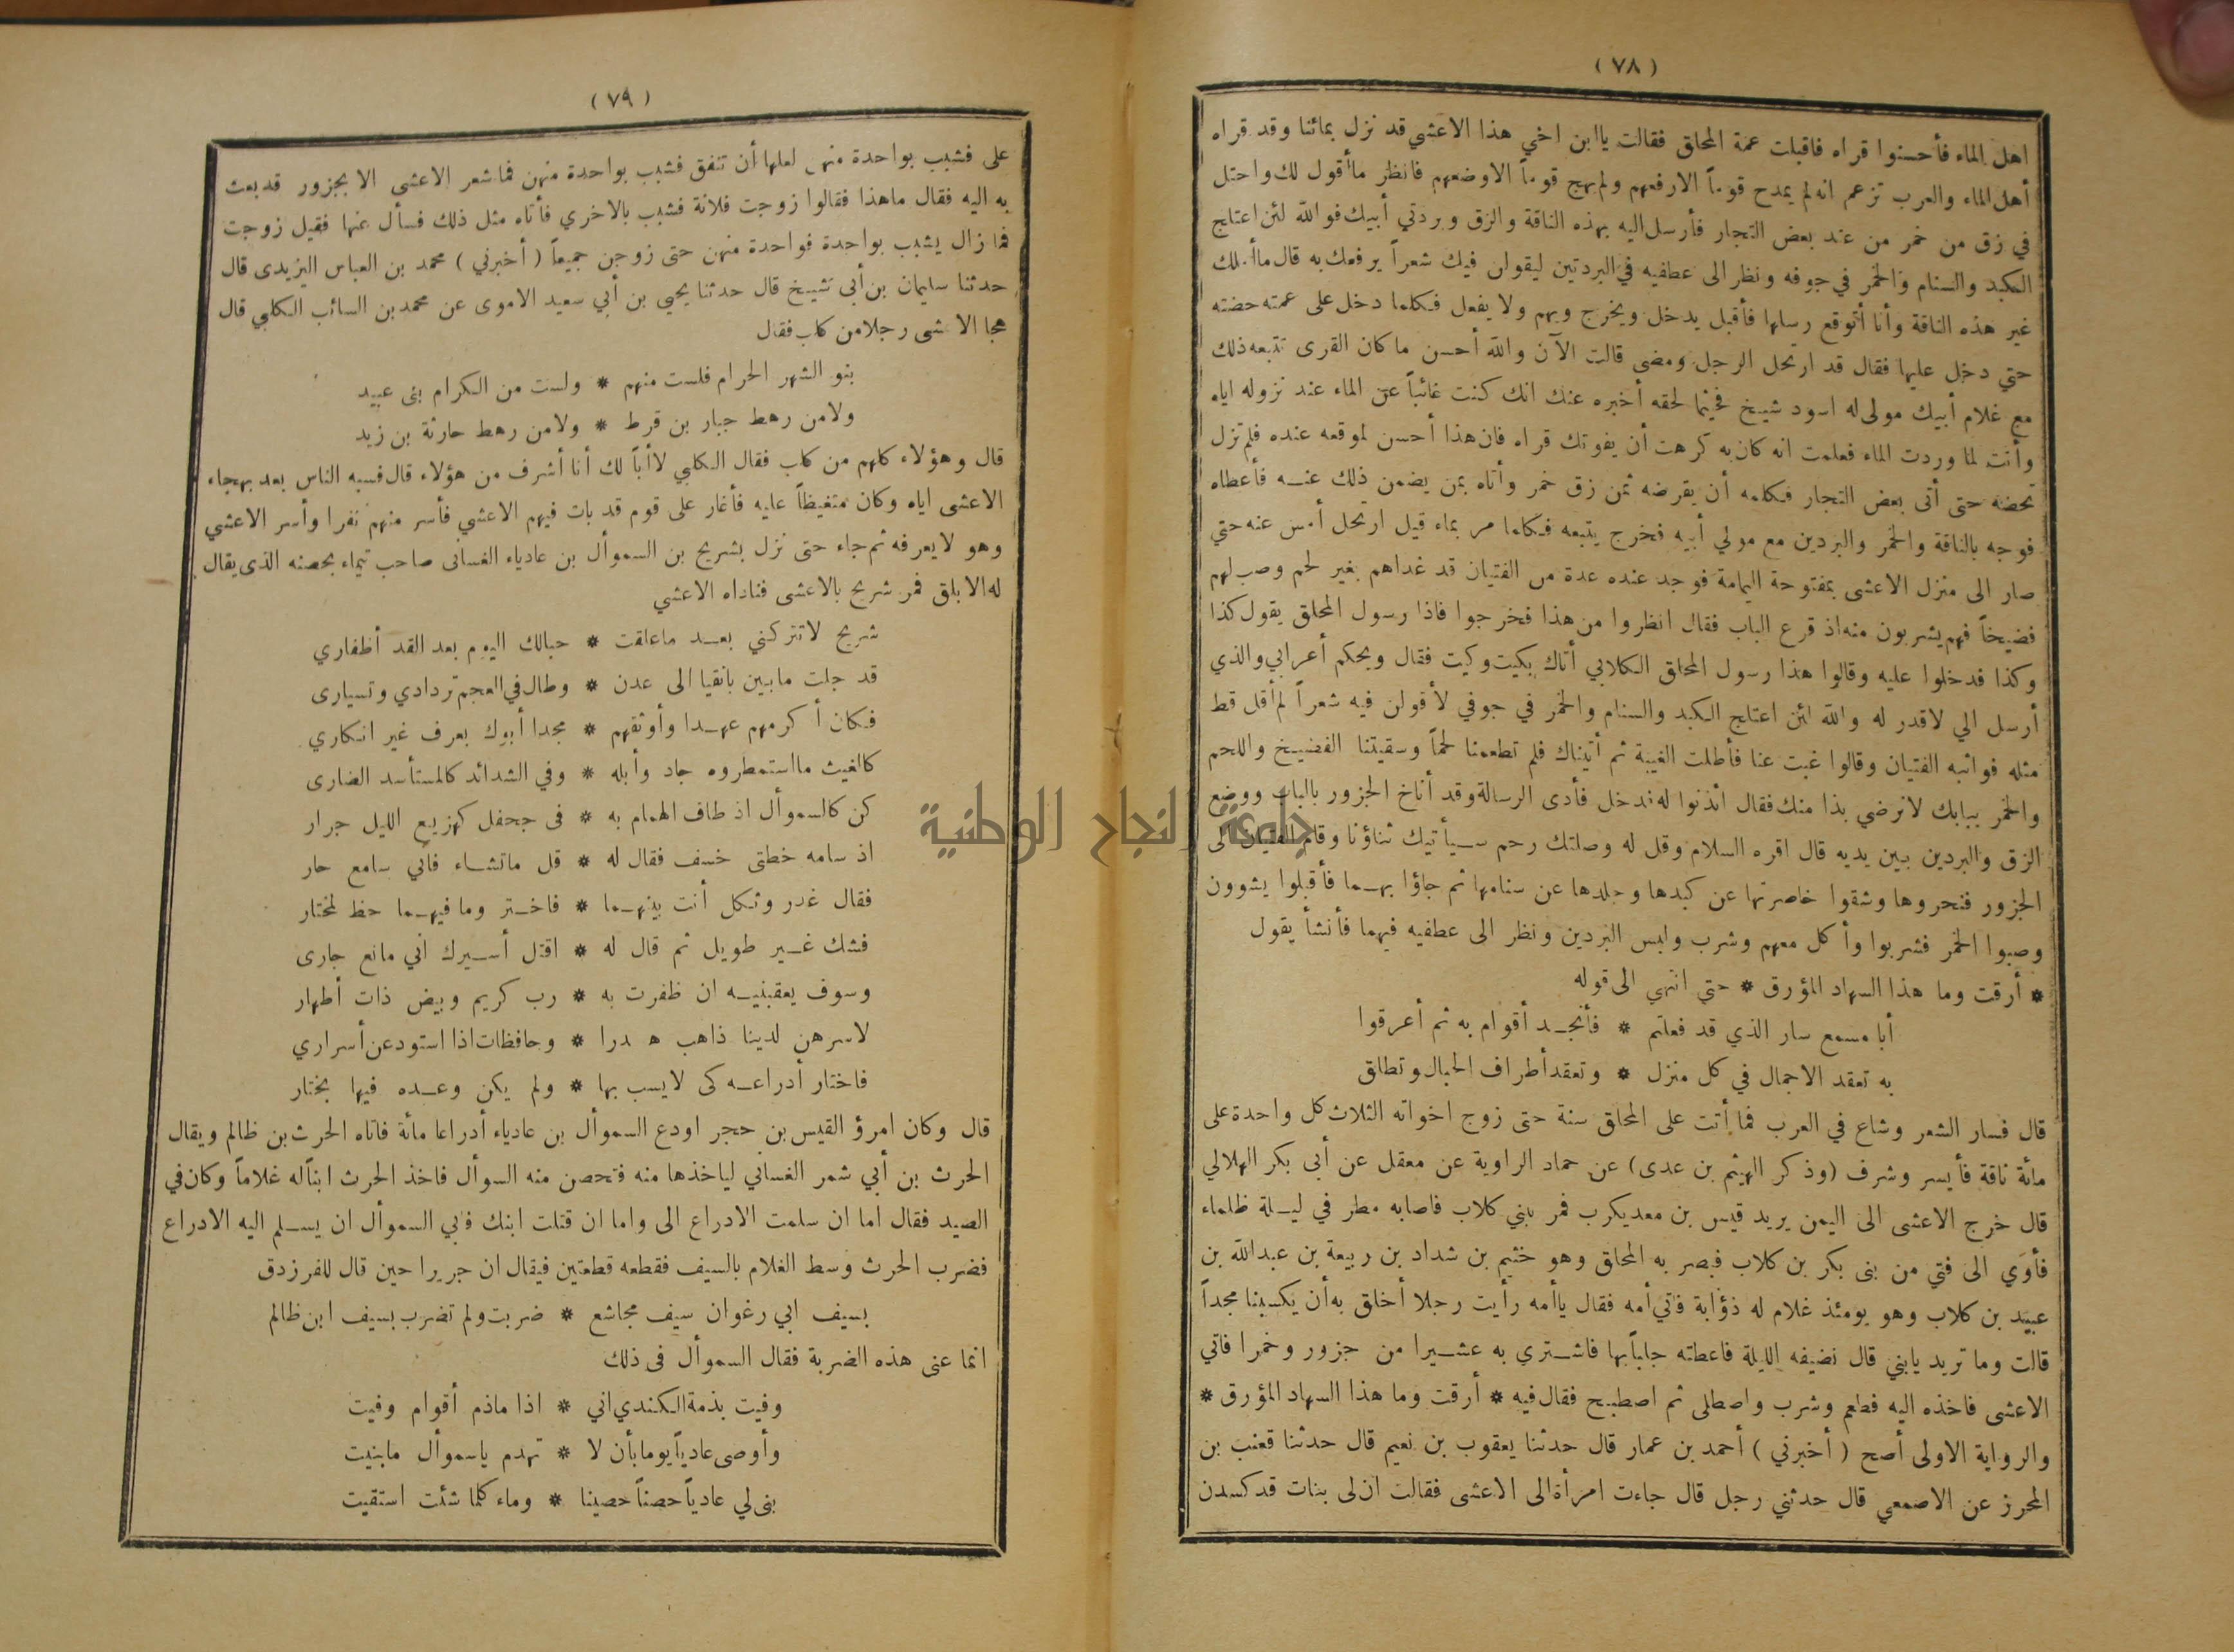 (٧٨)
اهل الماء فأحسنوا قراه فاقبلت عمة المحلق فقالت يا ابن اخي هذا الاعشى قد نزل بمائنا وقد قراه
أهل الماء والعرب تزعم انه لم يمدح قوماً الا رفعهم ولم يهج قوماً الا وضعهم فانظر ما أقول لك واحتل
في زق من خمر من عند بعض التجار فأرسل اليه بهذه الناقة والزق وبردتي أبيك فوالله لئن اعتلج
الكبد والسنام والخمر في جوفه ونظر الى عطفيه في البردتين ليقولن فيك شعراً يرفعك به قال ما أملك
غير هذه الناقة وأنا أتوقع رسلها فأقبل يدخل ويخرج ويهم ولا يفعل فكلما دخل على عمته حضته
حتي دخل عليها فقال قد ارتحل الرجل ومضى قالت الآن والله أحسن ما كان القرى تتبعه ذلك
مع غلام أبيك مولى له اسود شيخ فحيثما لحقه أخبره عنك انك كنت غائباً عن الماء عند نزوله اياه
وأنت لما وردت الماء فعلمت انه كان به كرهت أن يفوتك قراه فان هذا أحسن لموقعه عنده فلم تزل
تحضه حتى أتى بعض التجار فكلمه أن يقرضه ثمن زق خمر وأتاه بمن يضمن ذلك عنه فأعطاه
فوجه بالناقة والخمر والبردين مع مولي أبيه فخرج يتبعه فكلما مر بماء قيل ارتحل أمس عنه حتي
صار الى منزل الاعشى بمفتوحة اليمامة فوجد عنده عدة من الفتيان قد غداهم بغير لحم وصب لهم
فضيخاً فهم يشربون منه اذ قرع الباب فقال انظروا من هذا فخرجوا فاذا رسول المحلق يقول كذا
وكذا فدخلوا عليه وقالوا هذا رسول المحلق الكلابي أتاك بكيت وكيت فقال ويحكم أعرابي والذي
أرسل الي لا قدر له والله لئن اعتلج الكبد والسنام والخمر في جوفي لأقولن فيه شعراً لم أقل قط
مثله فواثبه الفتيان وقالوا غبت عنا فأطلت الغيبة ثم أتيناك فلم تطعمنا لحماً وسقيتنا الفضيخ واللحم
والخمر ببابك لا نرضي بذا منك فقال ائذنوا له فدخل فأدى الرسالة وقد أناخ الجزور بالباب ووضع
الزق والبردين بين يديه قال اقره السلام وقل له وصلتك رحم سيأتيك ثناؤنا وقام الفتيان الى
الجزور فنحروها وشقوا خاصرتها عن كبدها وجلدها عن سنامها ثم جاؤا بهما فأقبلوا يشوون
وصبوا الخمر فشربوا وأكل معهم وشرب ولبس البردين ونظر الى عطفيه فيهما فأنشأ يقول
* أرقت وما هذا السهاد المؤرق * حتي انتهي الى قوله
أبا مسمع سار الذي قد فعلتم * فأنجد أقوام به ثم أعرقوا
به تعقد الاجمال في كل منزل * وتعقد أطراف الحبال وتطلق
قال فسار الشعر وشاع في العرب فما أتت على المحلق سنة حتى زوج اخواته الثلاث كل واحدة على
مائة ناقة فأيسر وشرف (وذكر الهيثم بن عدى) عن حماد الراوية عن معقل عن أبى بكر الهلالي
قال خرج الاعشى الى اليمن يريد قيس بن معديكرب فمر ببني كلاب فاصابه مطر في ليلة ظلماء
فأوي الى فتي من بنى بكر بن كلاب فبصر به المحلق وهو خثيم بن شداد بن ربيعة بن عبدالله بن
عبيد بن كلاب وهو يومئذ غلام له ذؤابة فأتي أمه فقال يا أمه رأيت رجلا أخلق به أن يكسبنا مجداً
قالت وما تريد يابني قال نضيفه الليلة فاعطته جلبابها فاشتري به عشيرا من جزور وخمرا فاتي
الاعشى فاخذه اليه فطعم وشرب واصطلى ثم اصطبح فقال فيه * أرقت وما هذا السهاد المؤرق *
والرواية الاولى أصح ( أخبرني ) أحمد بن عمار قال حدثنا يعقوب بن نعيم قال حدثنا قعنب بن
المحرز عن الاصمعي قال حدثني رجل قال جاءت امرأة الى الاعشى فقالت ان لى بنات قد كسدن
(٧٩)
على فشبب بواحدة منهن لعلها أن تنفق فشبب بواحدة منهن فما شعر الاعشى الا بجزور قد بعث
به اليه فقال ماهذا فقالوا زوجت فلانة فشبب بالاخري فأتاه مثل ذلك فسأل عنها فقيل زوجت
فما زال يشبب بواحدة فواحدة منهن حتى زوجن جميعاً ( أخبرني ) محمد بن العباس اليزيدى قال
حدثنا سليمان بن أبى شيخ قال حدثنا يحيى بن أبي سعيد الاموى عن محمد بن السائب الكلبي قال
هجا الاعشى رجلا من كلب فقال
بنو الشهر الحرام فلست منهم * ولست من الكرام بنى عبيد
ولا من رهط جبار بن قرط * ولا من رهط حارثة بن زيد
قال وهؤلاء كلهم من كلب فقال الكلبي لا أباً لك أنا أشرف من هؤلاء قال فسبه الناس بعد بهجاء
الاعشى اياه وكان متغيظاً عليه فأغار على قوم قد بات فيهم الاعشي فأسر منهم نفرا وأسر الاعشي
وهو لا يعرفه ثم جاء حتى نزل بشريح بن السموأل بن عادياء الغسانى صاحب تيماء بحصنه الذى يقال
له الابلق فمر شريح بالاعشى فناداه الاعشي
شريح لا تتركني بعد ما علقت * حبالك اليوم بعد القد أظفاري
قد جلت ما بين بانقيا الى عدن * وطال في العجم تردادي وتسيارى
فكان أكرمهم عهدا وأوثقهم * مجدا أبوك بعرف غير انكاري
كالغيث ما استمطروه جاد وأبله * وفي الشدائد كالمستأسد الضارى
كن كالسموأل اذ طاف الهمام به * فى جحفل كهزيع الليل جرار
اذ سامه خطتى خسف فقال له * قل ما تشاء فاني سامع حار
فقال غدر وثكل أنت بينهما * فاختر وما فيهما حظ لمختار
فشك غير طويل ثم قال له * اقتل أسيرك اني مانع جارى
وسوف يعقبنيه ان ظفرت به * رب كريم وبيض ذات أطهار
لا سرهن لدينا ذاهب هدرا * وحافظات اذا استودعن أسراري
فاختار أدراعه كى لا يسب بها * ولم يكن وعده فيها بختار
قال وكان امرؤ القيس بن حجر اودع السموأل بن عادياء أدراعا مائة فاتاه الحرث بن ظالم ويقال
الحرث بن أبي شمر الغساني لياخذها منه فتحصن منه السوأل فاخذ الحرث ابناً له غلاماً وكان في
الصيد فقال اما ان سلمت الادراع الى واما ان قتلت ابنك فابي السموأل ان يسلم اليه الادراع
فضرب الحرث وسط الغلام بالسيف فقطعه قطعتين فيقال ان جريرا حين قال للفرزدق
بسيف ابي رغوان سيف مجاشع * ضربت ولم تضرب بسيف ابن ظالم
انما عنى هذه الضربة فقال السموأل فى ذلك
وفيت بذمة الكندي اني * اذا ماذم أقوام وفيت
وأوصى عادياً يوما بأن لا * تهدم ياسموأل ما بنيت
بنى لي عادياً حصناً حصينا * وماء كلما شئت استقيت
جامعة النجاح الوطنية